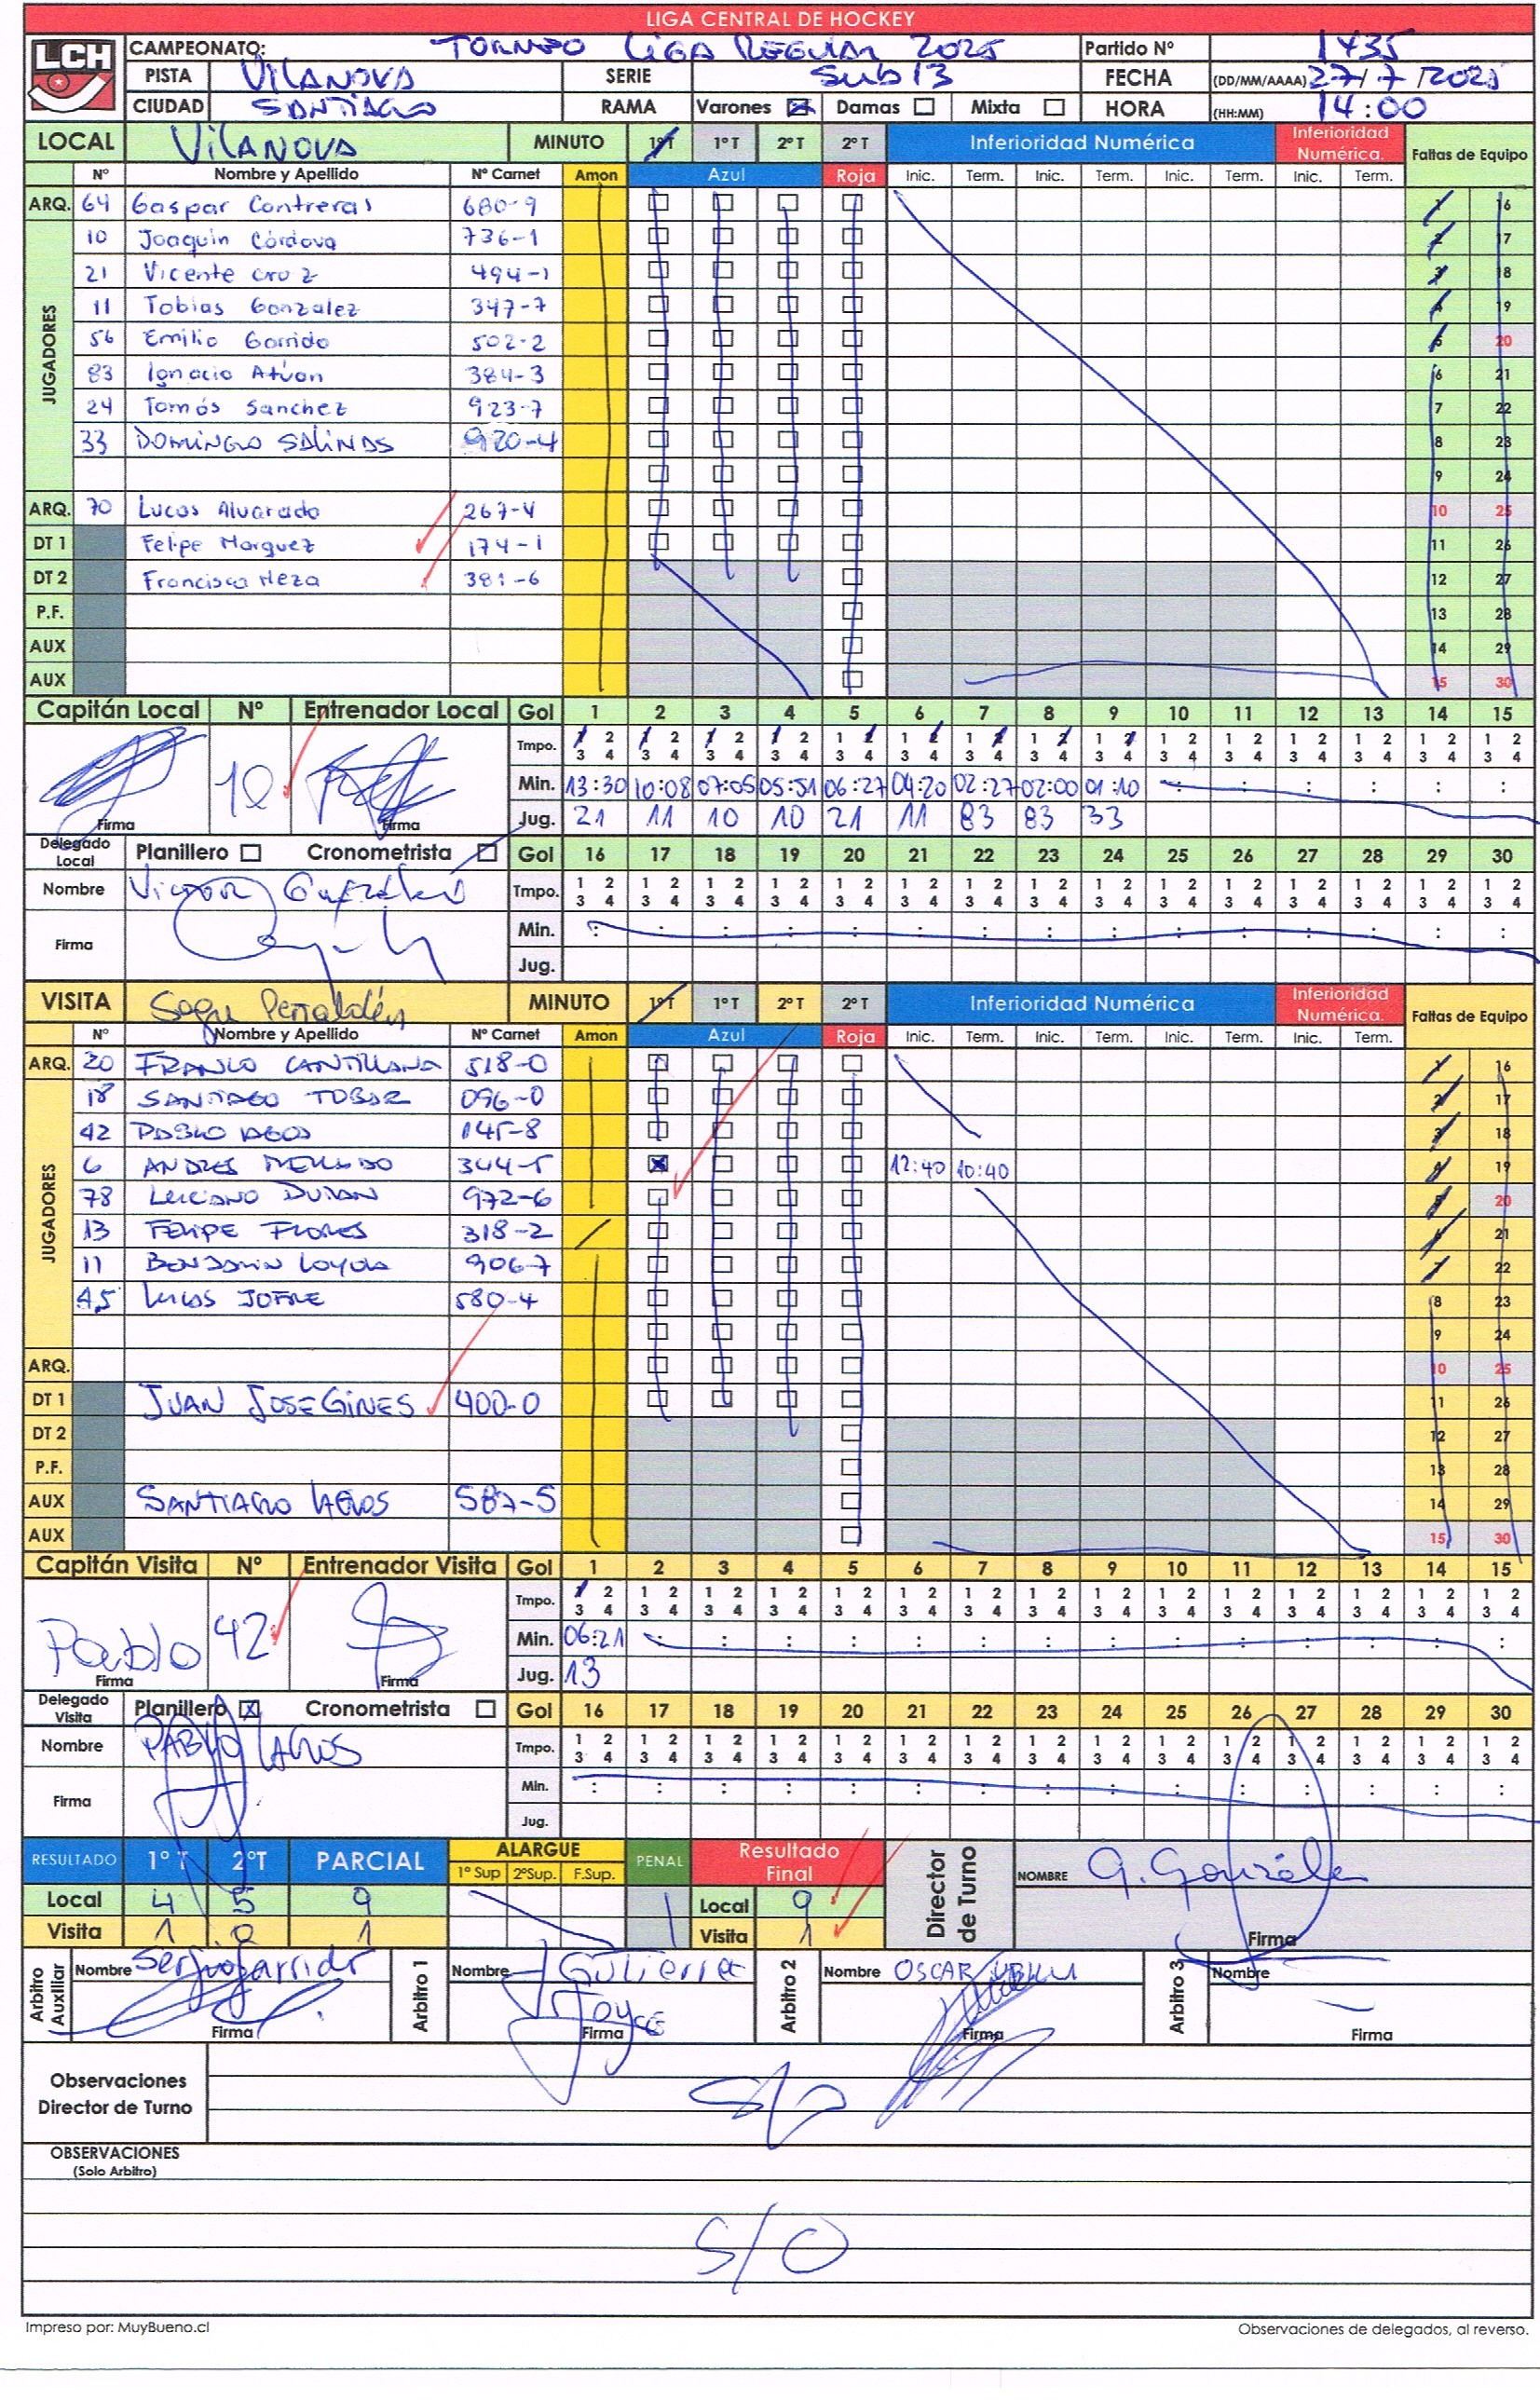 LIGA CENTRAL DE HOCKEY
LCH
CAMPEONATO: TORNEO LIGA REGULAR 2025 Partido Nº 1435
PISTA VILANOVA SERIE SUB 13 FECHA (DD/MM/AAAA) 27/7/2025
CIUDAD SANTIAGO RAMA Varones ☒ Damas ☐ Mixta ☐ HORA (HH:MM) 14:00
LOCAL VILANOVA MINUTO 1ºT 1ºT 2ºT 2ºT Inferioridad Numérica Inferioridad Numérica. Faltas de Equipo
Nº Nombre y Apellido Nº Carnet Amon Azul Roja Inic. Term. Inic. Term. Inic. Term. Inic. Term.
ARQ. 64 Gaspar Contreras 680-9 1 16
JUGADORES
10 Joaquín Córdova 736-1 2 17
21 Vicente Cruz 494-1 3 18
11 Tobias Gonzalez 347-7 4 19
56 Emilio Garrido 502-2 5 20
83 Ignacio Atuan 384-3 6 21
24 Tomás Sanchez 923-7 7 22
33 DOMINGO SALINAS 920-4 8 23
9 24
ARQ. 70 Lucas Alvarado 267-4 10 25
DT 1 Felipe Marquez 174-1 11 26
DT 2 Francisca Meza 381-6 12 27
P.F. 13 28
AUX 14 29
AUX 15 30
Capitán Local Nº Entrenador Local Gol 1 2 3 4 5 6 7 8 9 10 11 12 13 14 15
Tmpo. 1 2 1 2 1 2 1 2 1 2 1 2 1 2 1 2 1 2 1 2 1 2 1 2 1 2 1 2 1 2
3 4 3 4 3 4 3 4 3 4 3 4 3 4 3 4 3 4 3 4 3 4 3 4 3 4 3 4 3 4
10 Min. 13:30 10:08 07:05 05:51 06:27 04:20 02:27 02:00 01:10 : : : : : :
Firma Firma Jug. 21 11 10 10 21 11 83 83 33
Delegado Local Planillero ☐ Cronometrista ☐ Gol 16 17 18 19 20 21 22 23 24 25 26 27 28 29 30
Nombre Victor Tmpo. 1 2 1 2 1 2 1 2 1 2 1 2 1 2 1 2 1 2 1 2 1 2 1 2 1 2 1 2 1 2
3 4 3 4 3 4 3 4 3 4 3 4 3 4 3 4 3 4 3 4 3 4 3 4 3 4 3 4 3 4
Firma Min. : : : : : : : : : : : : : : :
Jug.
VISITA Sagu Peñalolén MINUTO 1ºT 1ºT 2ºT 2ºT Inferioridad Numérica Inferioridad Numérica. Faltas de Equipo
Nº Nombre y Apellido Nº Carnet Amon Azul Roja Inic. Term. Inic. Term. Inic. Term. Inic. Term.
ARQ. 20 FRANCO CANTILLANA 518-0 1 16
JUGADORES
18 SANTIAGO TOBAR 096-0 2 17
42 PABLO LAGOS 145-8 3 18
6 ANDRES MELLADO 344-5 ☒ 12:40 10:40 4 19
78 LUCIANO DURAN 972-6 5 20
13 FELIPE FLORES 318-2 6 21
11 BENJAMIN LOYOLA 906-7 7 22
45 LUCAS JOFRE 580-4 8 23
9 24
ARQ. 10 25
DT 1 JUAN JOSE GINES 400-0 11 26
DT 2 12 27
P.F. 13 28
AUX SANTIAGO LAGOS 587-5 14 29
AUX 15 30
Capitán Visita Nº Entrenador Visita Gol 1 2 3 4 5 6 7 8 9 10 11 12 13 14 15
Tmpo. 1 2 1 2 1 2 1 2 1 2 1 2 1 2 1 2 1 2 1 2 1 2 1 2 1 2 1 2 1 2
3 4 3 4 3 4 3 4 3 4 3 4 3 4 3 4 3 4 3 4 3 4 3 4 3 4 3 4 3 4
Pablo 42 Min. 06:21 : : : : : : : : : : : : : :
Firma Firma Jug. 13
Delegado Visita Planillero ☒ Cronometrista ☐ Gol 16 17 18 19 20 21 22 23 24 25 26 27 28 29 30
Nombre PABLO LAGOS Tmpo. 1 2 1 2 1 2 1 2 1 2 1 2 1 2 1 2 1 2 1 2 1 2 1 2 1 2 1 2 1 2
3 4 3 4 3 4 3 4 3 4 3 4 3 4 3 4 3 4 3 4 3 4 3 4 3 4 3 4 3 4
Firma Min. : : : : : : : : : : : : : : :
Jug.
RESULTADO 1ºT 2ºT PARCIAL ALARGUE 1ºSup 2ºSup. F.Sup. PENAL Resultado Final Director de Turno NOMBRE G. González
Local 4 5 9 Local 9
Visita 1 0 1 Visita 1 Firma
Arbitro Auxiliar Nombre Sergio Garrido Arbitro 1 Nombre J Gutierrez Arbitro 2 Nombre OSCAR Arbitro 3 Nombre
Firma Joyces Firma Firma Firma
Observaciones Director de Turno S/O
OBSERVACIONES
(Solo Arbitro)
S/O
Impreso por: MuyBueno.cl Observaciones de delegados, al reverso.